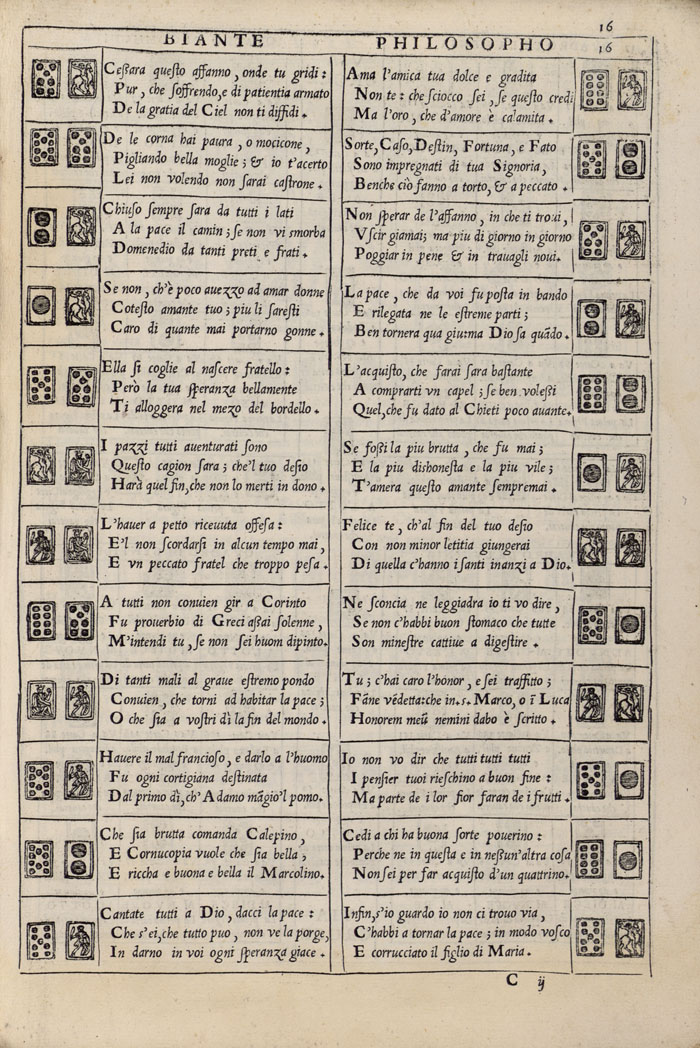 16
BIANTE PHILOSOPHO 16
Ceßara questo affanno, onde tu gridi:
Pur, che soffrendo, e di patientia armato
De la gratia del Ciel non ti diffidi.
De le corna hai paura, o mocicone,
Pigliando bella moglie; & io t'acerto
Lei non volendo non sarai castrone.
Chiuso sempre sara da tutti i lati
A la pace il camin; se non vi smorba
Domenedio da tanti preti e frati.
Se non, ch'è poco auezzo ad amar donne
Cotesto amante tuo; piu li saresti
Caro di quante mai portarno gonne.
Ella si coglie al nascere fratello:
Però la tua speranza bellamente
Ti alloggera nel mezo del bordello.
I pazzi tutti auenturati sono
Questo cagion sara; che'l tuo desio
Harà quel fin, che non lo merti in dono.
L'hauer a petto riceuuta offesa:
E'l non scordarsi in alcun tempo mai,
E vn peccato fratel che troppo pesa.
A tutti non conuien gir a Corinto
Fu prouerbio di Greci aßai solenne,
M'intendi tu, se non sei huom dipinto.
Di tanti mali al graue estremo pondo
Conuien, che torni ad habitar la pace;
O che sia a vostri dì la fin del mondo.
Hauere il mal francioso, e darlo a l'huomo
Fu ogni cortigiana destinata
Dal primo dì, ch'Adamo mãgio'l pomo.
Che sia brutta comanda Calepino,
E Cornucopia vuole che sia bella,
E riccha e buona e bella il Marcolino.
Cantate tutti a Dio, dacci la pace:
Che s'ei, che tutto puo, non ve la porge,
In darno in voi ogni speranza giace.
Ama l'amica tua dolce e gradita
Non te: che sciocco sei, se questo credi
Ma l'oro, che d'amore è calamita.
Sorte, Caso, Destin, Fortuna, e Fato
Sono impregnati di tua Signoria,
Benche cio fanno a torto, & a peccato.
Non sperar de l'affanno, in che ti troui,
Vscir giamai; ma piu di giorno in giorno
Poggiar in pene & in trauagli noui.
La pace, che da voi fu posta in bando
E rilegata ne le estreme parti;
Ben tornera qua giu: ma Dio sa quãdo.
L'acquisto, che farai sara bastante
A comprarti vn capel; se ben voleßi
Quel, che fu dato al Chieti poco auante.
Se foßi la piu brutta, che fu mai;
E la piu dishonesta e la piu vile;
T'amera questo amante sempremai.
Felice te, ch'al fin del tuo desio
Con non minor letitia giungerai
Di quella c'hanno i santi inanzi a Dio.
Ne sconcia ne leggiadra io ti vo dire,
Se non c'habbi buon stomaco che tutte
Son minestre cattiue a digestire.
Tu; c'hai caro l'honor, e sei traffitto;
Fãne vẽdetta: che in. s. Marco, o ĩ Luca
Honorem meũ nemini dabo è scritto.
Io non vo dir che tutti tutti tutti
I pensier tuoi rieschino a buon fine:
Ma parte de i lor fior faran de i frutti.
Cedi a chi ha buona sorte pouerino:
Perche ne in questa e in neßun'altra cosa
Non sei per far acquisto d'un quattrino.
Infin, s'io guardo io non ci trouo via,
C'habbi a tornar la pace; in modo vosco
E corrucciato il figlio di Maria.
C ij